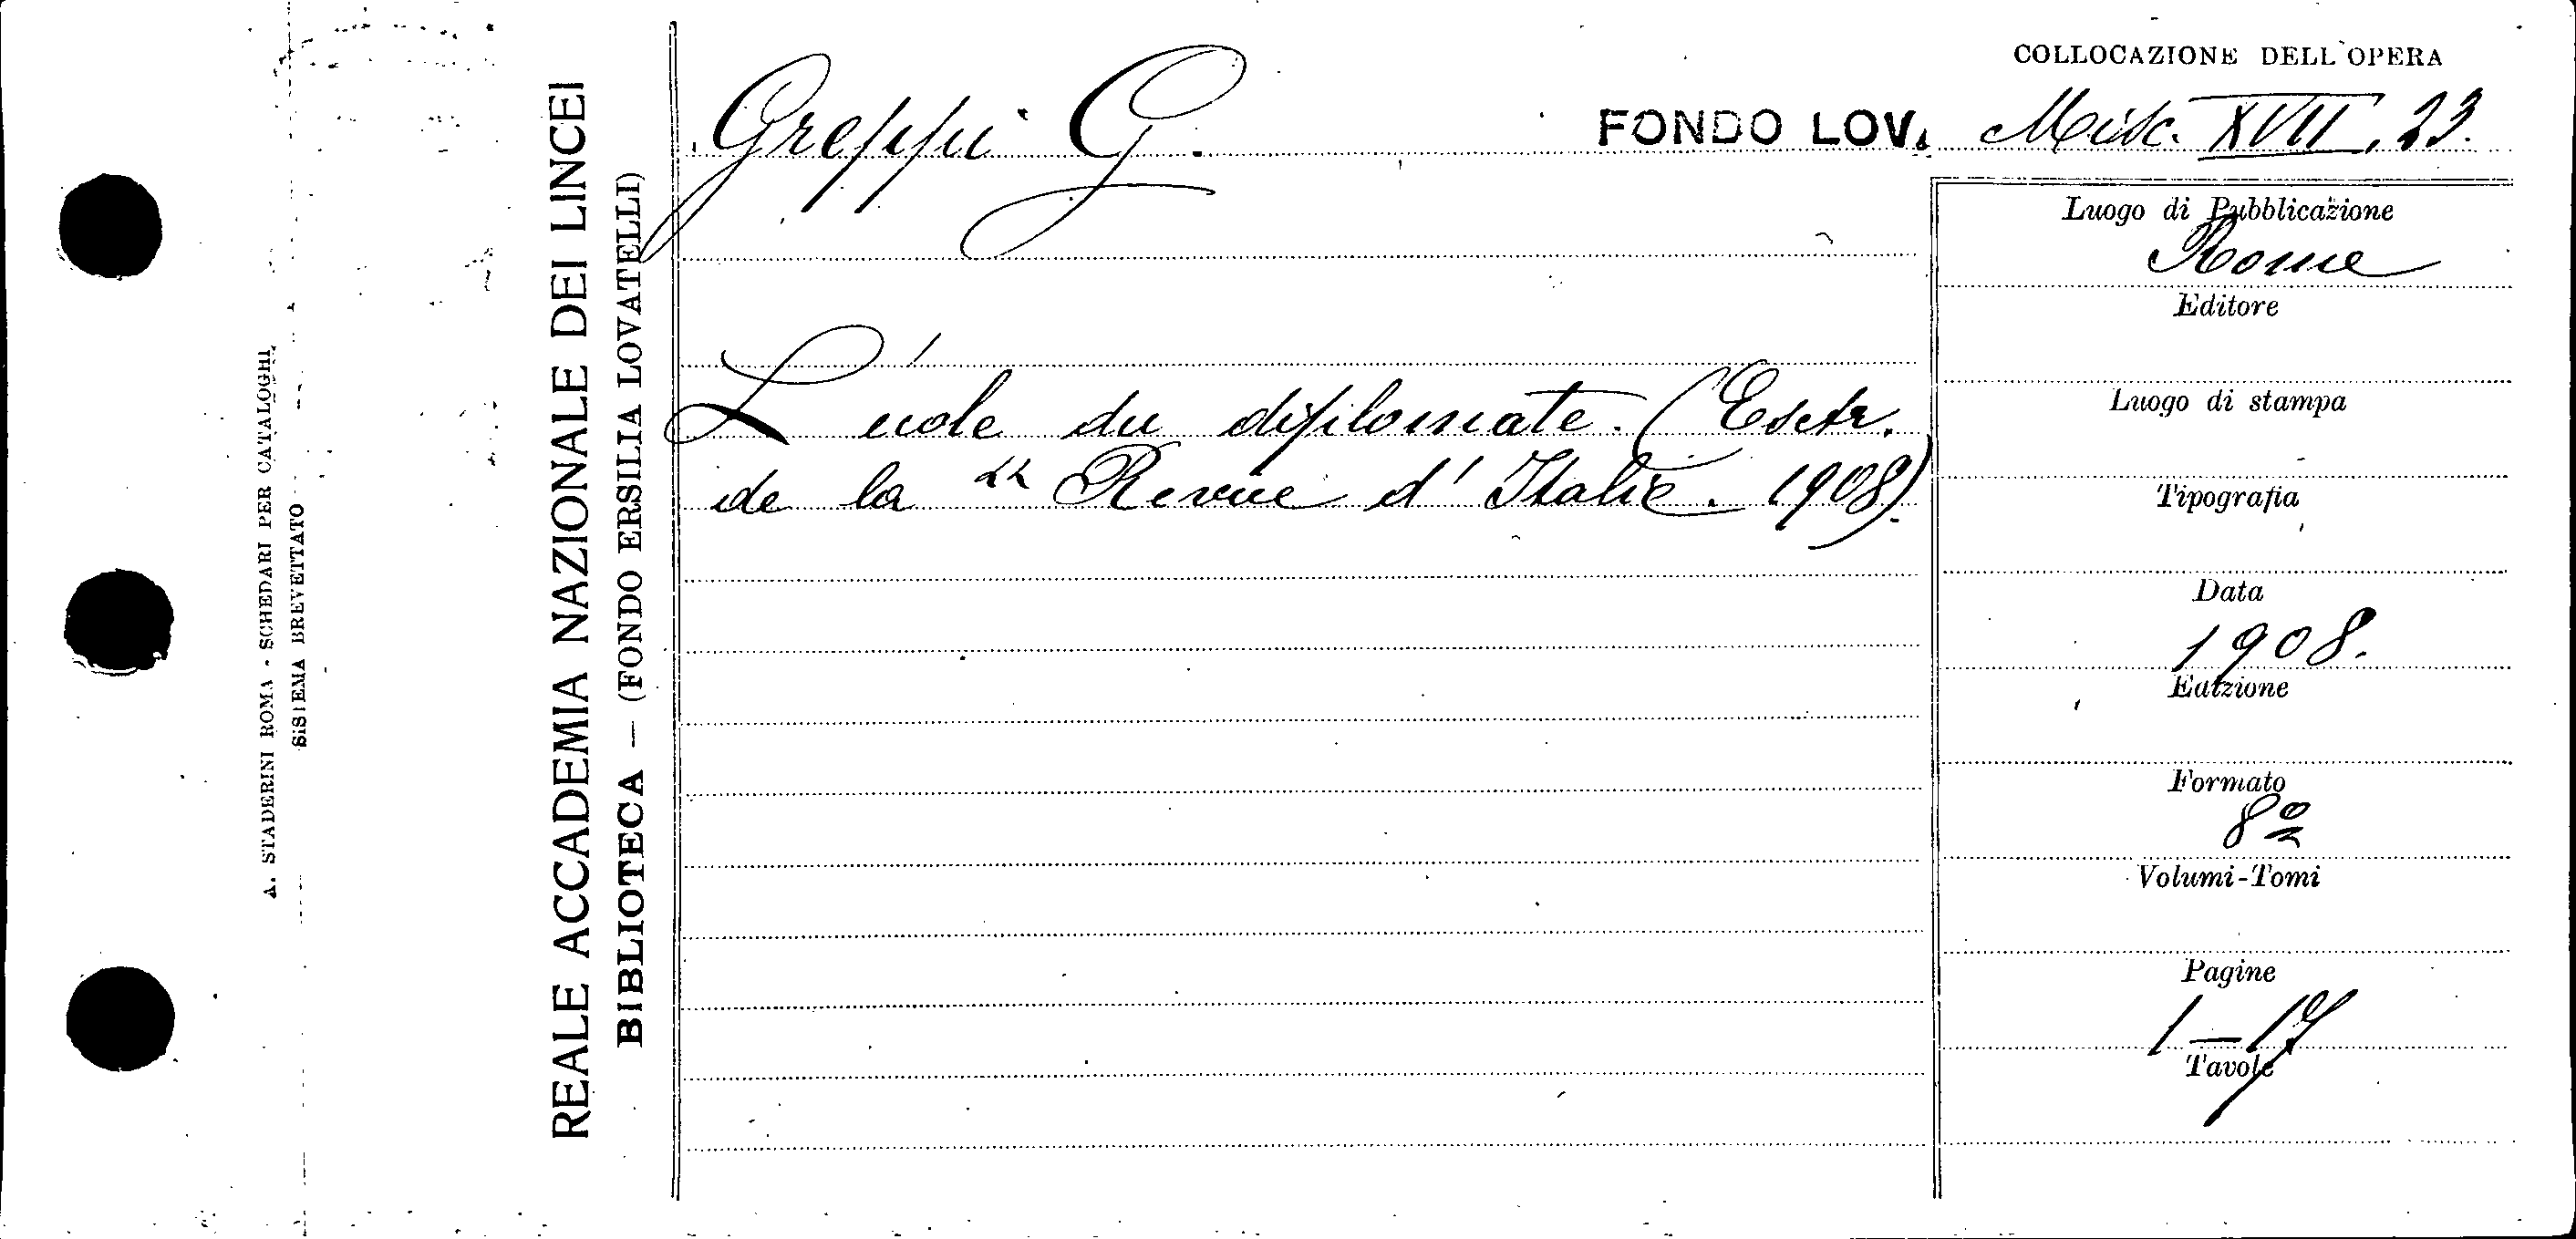 COLLOCAZIONE DELL'OPERA
Greppi G.
FONDO LOV. Misc. XVII, 23.
L'école du diplomate. (Estr.
de la " Revue d'Italie. 1908).
Luogo di Pubblicazione
Rome
Editore
Luogo di stampa
Tipografia
Data
1908.
Edizione
Formato
8º
Volumi-Tomi
Pagine
1-17
Tavole
REALE ACCADEMIA NAZIONALE DEI LINCEI
BIBLIOTECA — (FONDO ERSILIA LOVATELLI)
A. STADERINI ROMA - SCHEDARI PER CATALOGHI
SISTEMA BREVETTATO